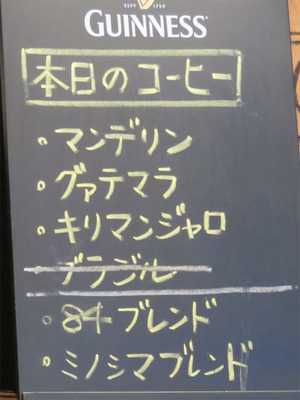 ESTD 1759
GUINNESS
本日のコーヒー
・マンデリン
・グァテマラ
・キリマンジャロ
ブラジル
・84ブレンド
・ミノシマブレンド